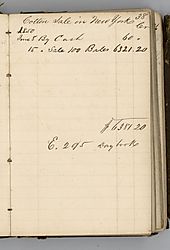 Cotton Sale in New York 38
1850 Cr
June 5 By Cash 60 -
15 " Sale 100 Bales 6321.20
$ 6381.20
E. 295 Day book